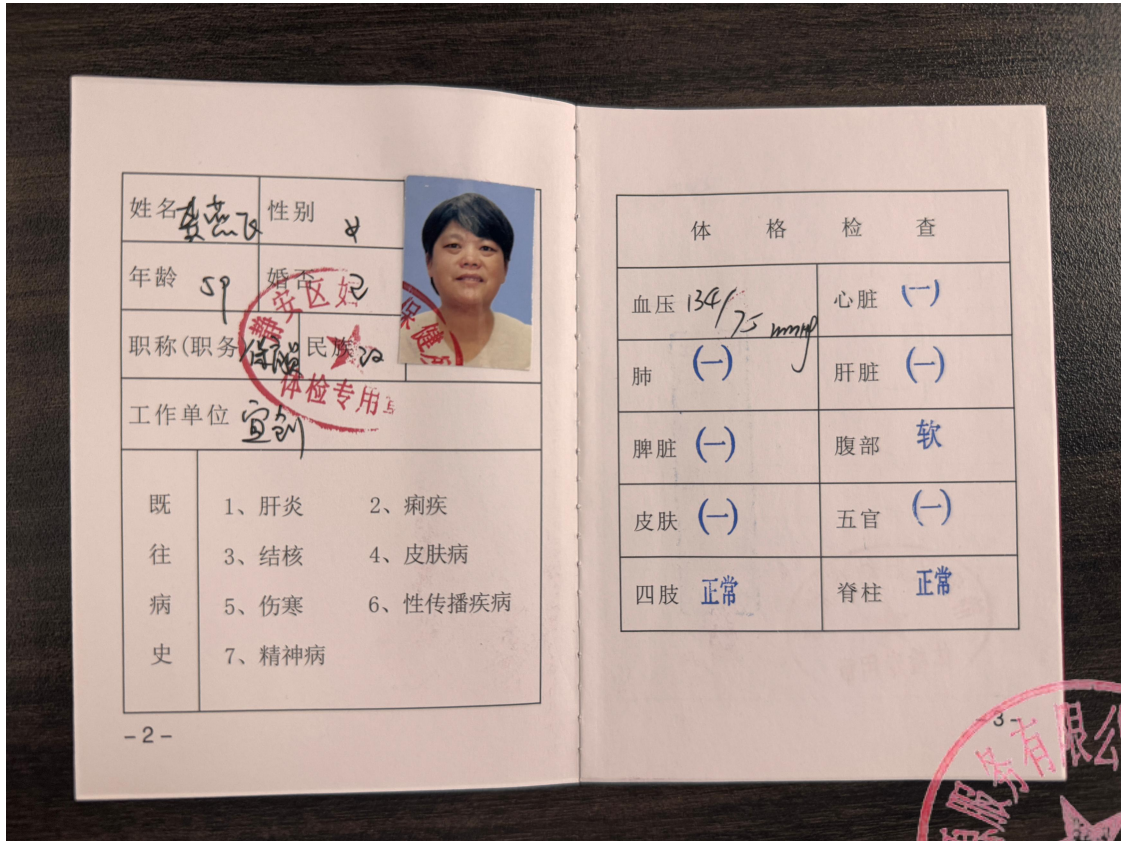 姓名 龚燕飞 性别 女
年龄 59 婚否 已
职称(职务 保洁 民族 汉
工作单位 宜创
静安区妇
保健所
体检专用
既往病史
1、肝炎 2、痢疾
3、结核 4、皮肤病
5、伤寒 6、性传播疾病
7、精神病
-2-
体格检查
血压 134/75 mmHg 心脏 (一)
肺 (一) 肝脏 (一)
脾脏 (一) 腹部 软
皮肤 (一) 五官 (一)
四肢 正常 脊柱 正常
-3-
服务有限公